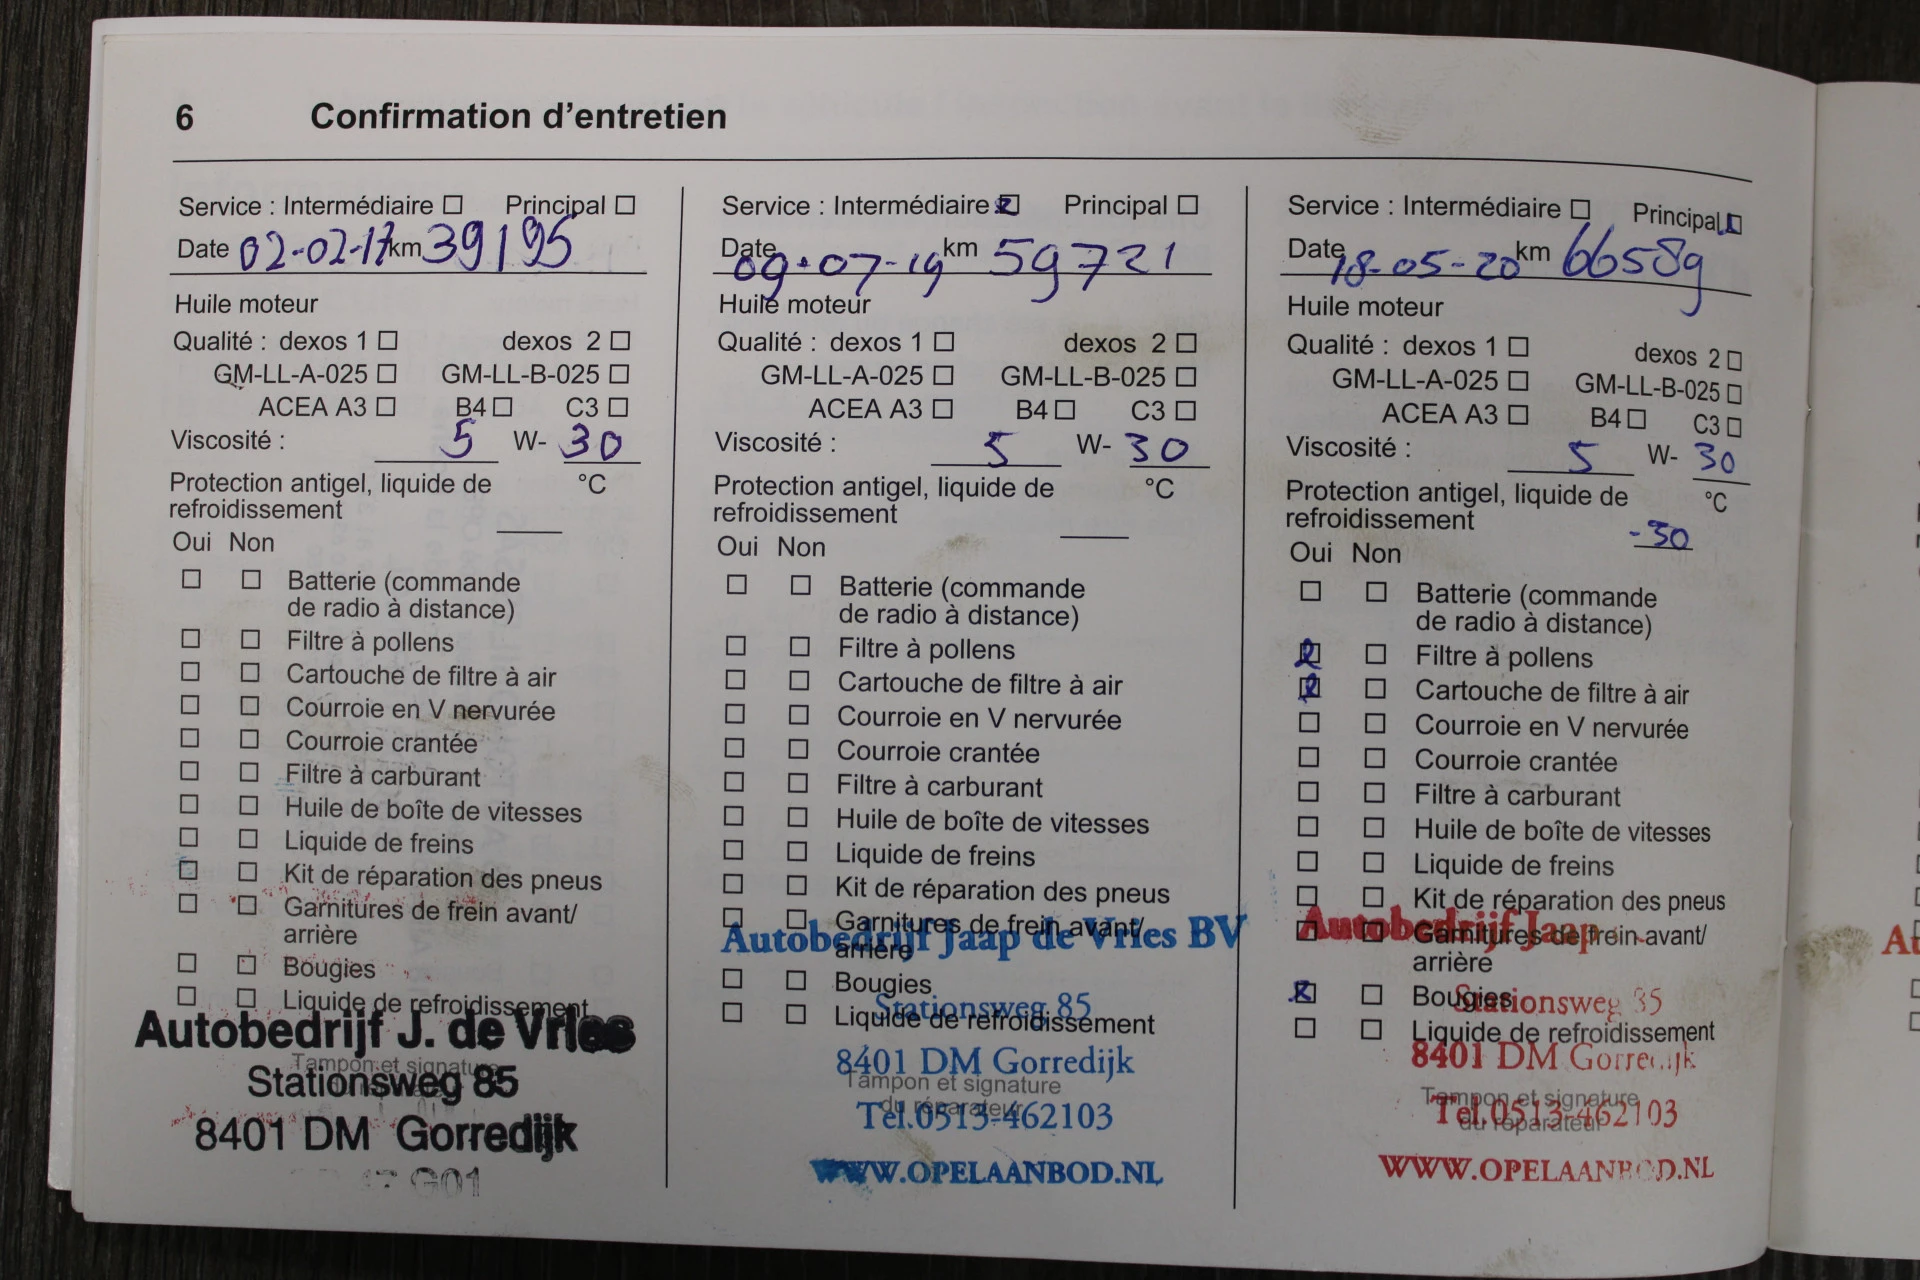 6 Confirmation d'entretien
Service : Intermédiaire ☐ Principal ☐
Date 02-02-17 km 39195
Huile moteur
Qualité : dexos 1 ☐ dexos 2 ☐
GM-LL-A-025 ☐ GM-LL-B-025 ☐
ACEA A3 ☐ B4 ☐ C3 ☐
Viscosité : 5 W- 30
Protection antigel, liquide de °C
refroidissement
Oui Non
☐ ☐ Batterie (commande
de radio à distance)
☐ ☐ Filtre à pollens
☐ ☐ Cartouche de filtre à air
☐ ☐ Courroie en V nervurée
☐ ☐ Courroie crantée
☐ ☐ Filtre à carburant
☐ ☐ Huile de boîte de vitesses
☐ ☐ Liquide de freins
☐ ☐ Kit de réparation des pneus
☐ ☐ Garnitures de frein avant/
arrière
☐ ☐ Bougies
☐ ☐ Liquide de refroidissement
Autobedrijf J. de Vries
Tampon et signature
Stationsweg 85
8401 DM Gorredijk
G01
Service : Intermédiaire ☒ Principal ☐
Date 09-07-19 km 59721
Huile moteur
Qualité : dexos 1 ☐ dexos 2 ☐
GM-LL-A-025 ☐ GM-LL-B-025 ☐
ACEA A3 ☐ B4 ☐ C3 ☐
Viscosité : 5 W- 30
Protection antigel, liquide de °C
refroidissement
Oui Non
☐ ☐ Batterie (commande
de radio à distance)
☐ ☐ Filtre à pollens
☐ ☐ Cartouche de filtre à air
☐ ☐ Courroie en V nervurée
☐ ☐ Courroie crantée
☐ ☐ Filtre à carburant
☐ ☐ Huile de boîte de vitesses
☐ ☐ Liquide de freins
☐ ☐ Kit de réparation des pneus
☐ ☐ Garnitures de frein avant/
Autobedrijf Jaap de Vries BV
arrière
☐ ☐ Bougies
Stationsweg 85
☐ ☐ Liquide de refroidissement
8401 DM Gorredijk
Tampon et signature
du réparateur
Tel.0513-462103
WWW.OPELAANBOD.NL
Service : Intermédiaire ☐ Principal ☒
Date 18-05-20 km 66589
Huile moteur
Qualité : dexos 1 ☐ dexos 2 ☐
GM-LL-A-025 ☐ GM-LL-B-025 ☐
ACEA A3 ☐ B4 ☐ C3 ☐
Viscosité : 5 W- 30
Protection antigel, liquide de °C
refroidissement -30
Oui Non
☐ ☐ Batterie (commande
de radio à distance)
☒ ☐ Filtre à pollens
☒ ☐ Cartouche de filtre à air
☐ ☐ Courroie en V nervurée
☐ ☐ Courroie crantée
☐ ☐ Filtre à carburant
☐ ☐ Huile de boîte de vitesses
☐ ☐ Liquide de freins
☐ ☐ Kit de réparation des pneus
Autobedrijf Jaap
☐ ☐ Garnitures de frein avant/
arrière
☒ ☐ Bougies
Stationsweg 85
☐ ☐ Liquide de refroidissement
8401 DM Gorredijk
Tampon et signature
Tel.0513-462103
du réparateur
WWW.OPELAANBOD.NL